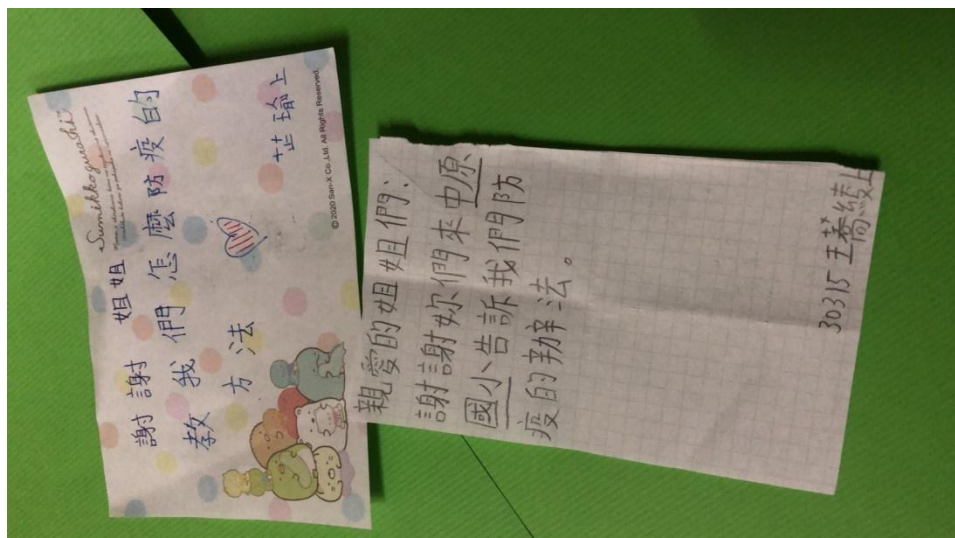 Sumikkogurashi
謝謝 姐姐
教我們怎麼防疫的
方法
芷瑜上
© 2020 San-X Co.,Ltd. All Rights Reserved.
親愛的姐姐們:
謝謝妳們來中原
國小告訴我們防
疫的辦法。
30315 王 綾上